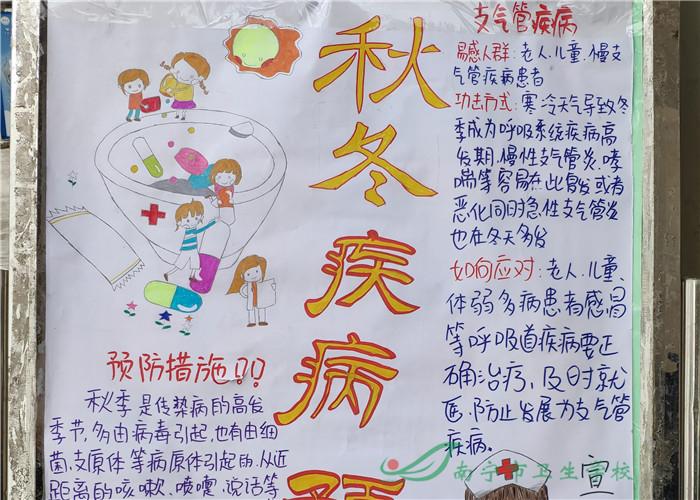 秋冬疾病预
支气管疾病
易感人群:老人、儿童、慢支
气管疾病患者
功击方式:寒冷天气导致冬
季成为呼吸系统疾病高
发期,慢性支气管炎、哮
喘等容易在此复发或者
恶化同时急性支气管炎
也在冬天多发
如何应对:老人、儿童、
体弱多病患者感冒
等呼吸道疾病要正
确治疗,及时就
医,防止发展为支气管
疾病。
预防措施!!
秋季是传染病的高发
季节,多由病毒引起,也有由细
菌、支原体等病原体引起的.从近
距离的咳嗽、喷嚏、说话等
宣
南宁市卫生学校